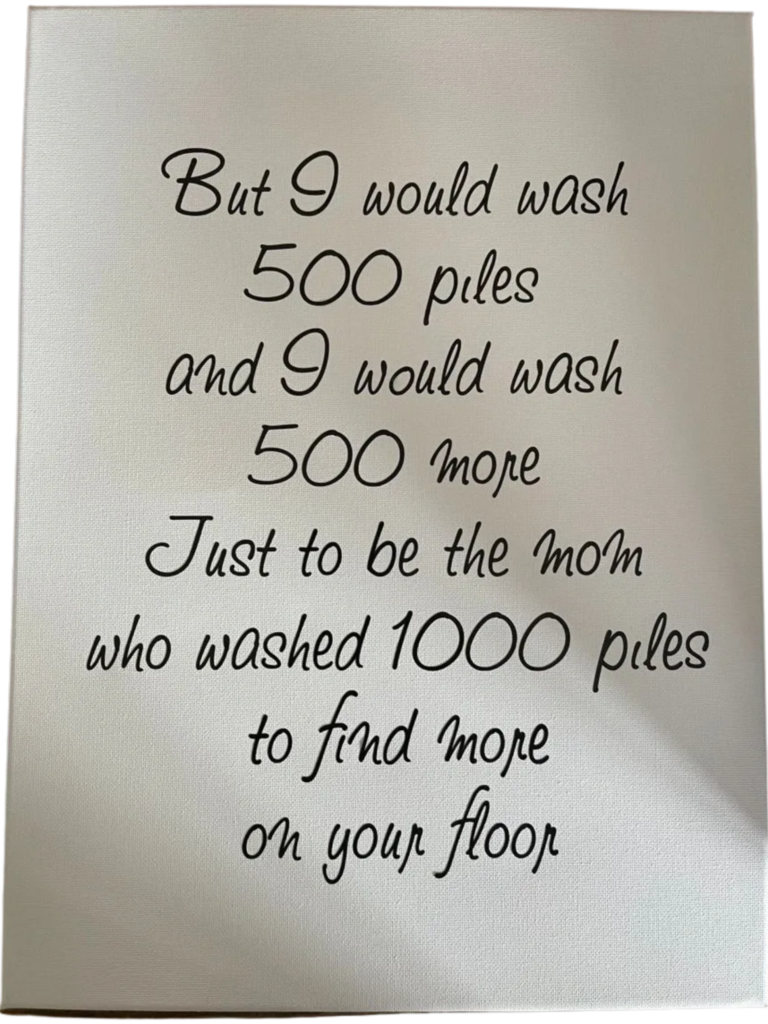 But I would wash
500 piles
and I would wash
500 more
Just to be the mom
who washed 1000 piles
to find more
on your floor